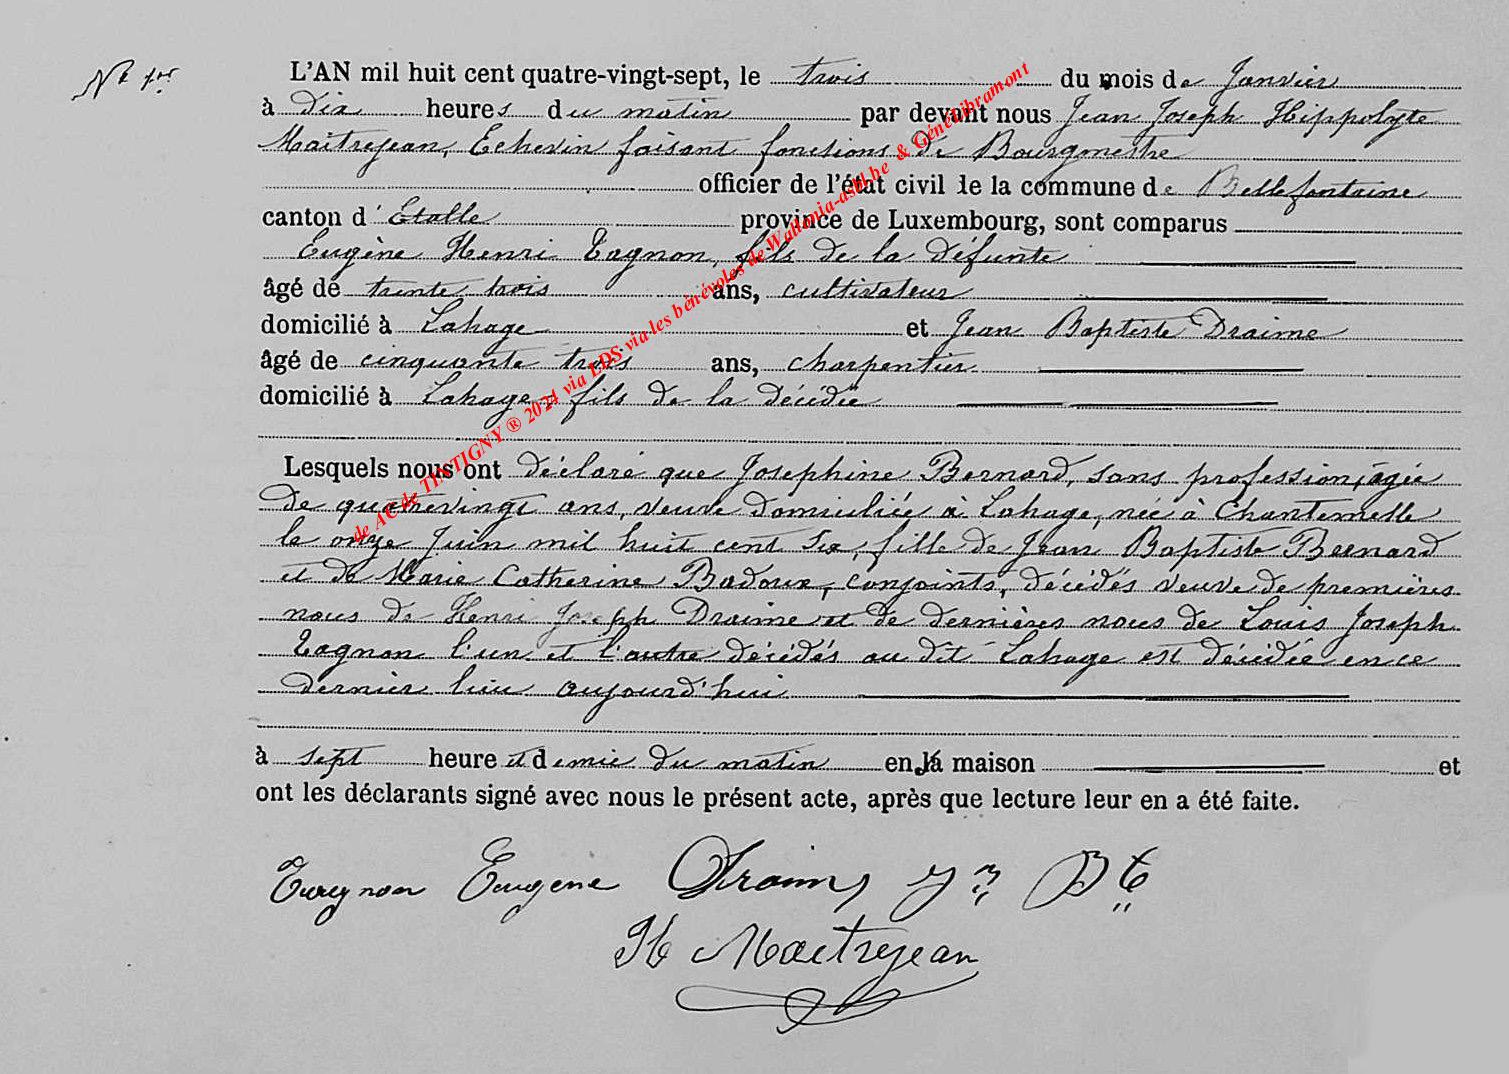 Nº 1er
L'AN mil huit cent quatre-vingt-sept, le trois du mois de Janvier
à dix heures du matin par devant nous Jean Joseph Hippolyte
Maitrejean, Echevin faisant fonctions de Bourgmestre
officier de l'état civil de la commune de Bellefontaine
canton d'Etalle province de Luxembourg, sont comparus
Eugène Henri Tagnon, fils de la défunte
âgé de trente trois ans, cultivateur
domicilié à Lahage et Jean Baptiste Draime
âgé de cinquante trois ans, charpentier
domicilié à Lahage, fils de la décédée
Lesquels nous ont déclaré que Josephine Bernard, sans profession, âgée
de quatrevingt ans, veuve domiciliée à Lahage, née à Chantemelle
le onze Juin mil huit cent six, fille de Jean Baptiste Bernard
et de Marie Catherine Badoux, conjoints, décédés veuve de premières
noces de Henri Joseph Draime et de dernières noces de Louis Joseph
Tagnon l'un et l'autre décédés au dit Lahage est décédée en ce
dernier lieu aujourd'hui
à sept heure et demie du matin en la maison et
ont les déclarants signé avec nous le présent acte, après que lecture leur en a été faite.
Eugene Draime Jn Bte
H Maitrejean
de AC de TINTIGNY ® 2024 via LDS via les bénévoles de Wallonia-asbl.be & Généalibramont